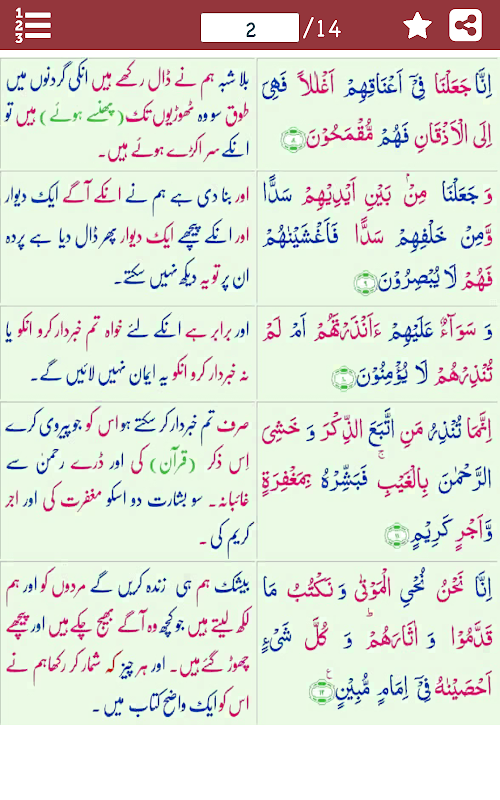 1
2
3
2
/14
اِنَّا جَعَلْنَا فِيْٓ اَعْنَاقِهِمْ اَغْلٰلاً فَهِيَ
اِلَى الْاَذْقَانِ فَهُمْ مُّقْمَحُوْنَ ﴿٨﴾
بلا شبہ ہم نے ڈال رکھے ہیں انکی گردنوں میں
طوق سو وہ ٹھوڑیوں تک (پھنسے ہوئے) ہیں تو
انکے سر اکڑے ہوئے ہیں۔
وَ جَعَلْنَا مِنْۢ بَيْنِ اَيْدِيْهِمْ سَدًّا
وَّمِنْ خَلْفِهِمْ سَدًّا فَاَغْشَيْنٰهُمْ
فَهُمْ لَا يُبْصِرُوْنَ ﴿٩﴾
اور بنا دی ہے ہم نے انکے آگے ایک دیوار
اور انکے پیچھے ایک دیوار پھر ڈال دیا ہے پردہ
ان پر تو یہ دیکھ نہیں سکتے۔
وَ سَوَآءٌ عَلَيْهِمْ ءَاَنْذَرْتَهُمْ اَمْ لَمْ
تُنْذِرْهُمْ لَا يُؤْمِنُوْنَ ﴿١٠﴾
اور برابر ہے انکے لئے خواہ تم خبردار کرو انکو یا
نہ خبردار کرو انکو یہ ایمان نہیں لائیں گے۔
اِنَّمَا تُنْذِرُ مَنِ اتَّبَعَ الذِّكْرَ وَ خَشِيَ
الرَّحْمٰنَ بِالْغَيْبِ ۚ فَبَشِّرْهُ بِمَغْفِرَةٍ
وَّاَجْرٍ كَرِيْمٍ ﴿١١﴾
صرف تم خبردار کر سکتے ہو اس کو جو پیروی کرے
اِس ذکر (قرآن) کی اور ڈرے رحمٰن سے
غائبانہ۔ سو بشارت دو اسکو مغفرت کی اور اجر
کریم کی۔
اِنَّا نَحْنُ نُحْيِ الْمَوْتٰى وَ نَكْتُبُ مَا
قَدَّمُوْا وَ اٰثَارَهُمْ ؕ وَ كُلَّ شَيْءٍ
اَحْصَيْنٰهُ فِيْٓ اِمَامٍ مُّبِيْنٍ ﴿١٢﴾ ع
بیشک ہم ہی زندہ کریں گے مردوں کو اور ہم
لکھ لیتے ہیں جو کچھ وہ آگے بھیج چکے ہیں اور پیچھے
چھوڑ گئے ہیں۔ اور ہر چیز کہ شمار کر رکھا ہم نے
اس کو ایک واضح کتاب میں ۔